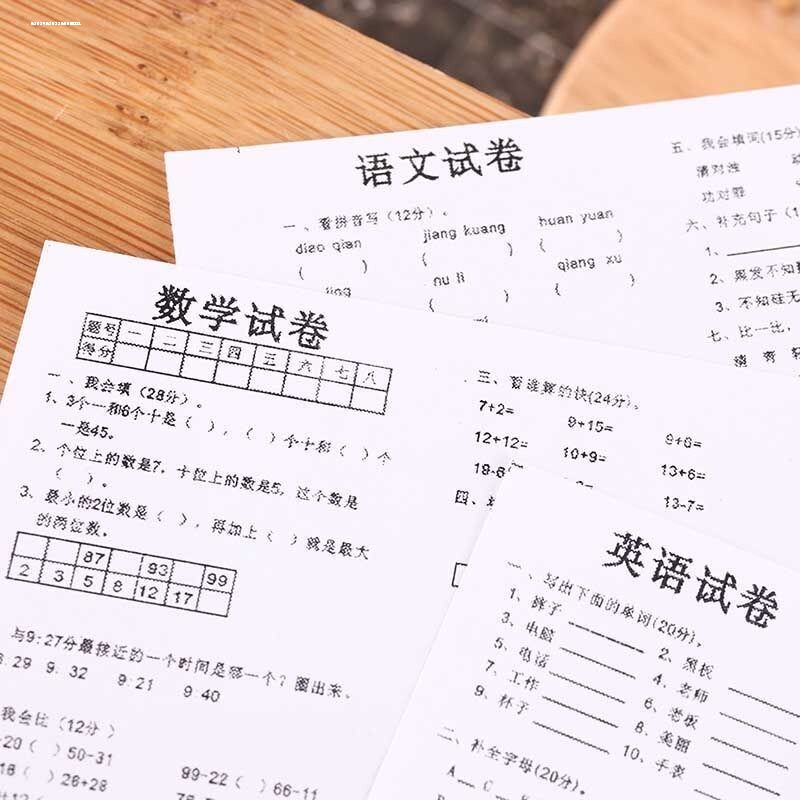 语文试卷
一、看拼音写(12分)。
diao qian jiang kuang huan yuan
( ) ( ) ( )
nu li qiang xu
( ) ( )
五、我会填词(15分)
清对浊
功对罪
六、补充句子(1
1、
2、
3、不知
七、比一比,
数学试卷
题号 一 二 三 四 五 六 七 八
得分
一、我会填(28分)。
1、3个一和6个十是( ),( )个十和( )个
一是45。
2、个位上的数是7,十位上的数是5,这个数是
( )。
3、最小的2位数是( ),再加上( )就是最大
的两位数。
87 93 99
2 3 5 8 12 17
与9:27分最接近的一个时间是哪一个?圈出来。
8:29 9:32 9:21 9:40
我会比(12分)
20( )50-31
99-22( )66-11
26+28
三、看谁算的快(24分)。
7+2= 9+15= 9+6=
12+12= 10+9= 13+6=
13-7=
四、
英语试卷
一、写出下面的单词(20分)。
1、裤子 2、黑板
3、电脑 4、老师
5、电话 6、老板
7、工作 8、美丽
9、杯子 10、手表
二、补全字母(20分)。